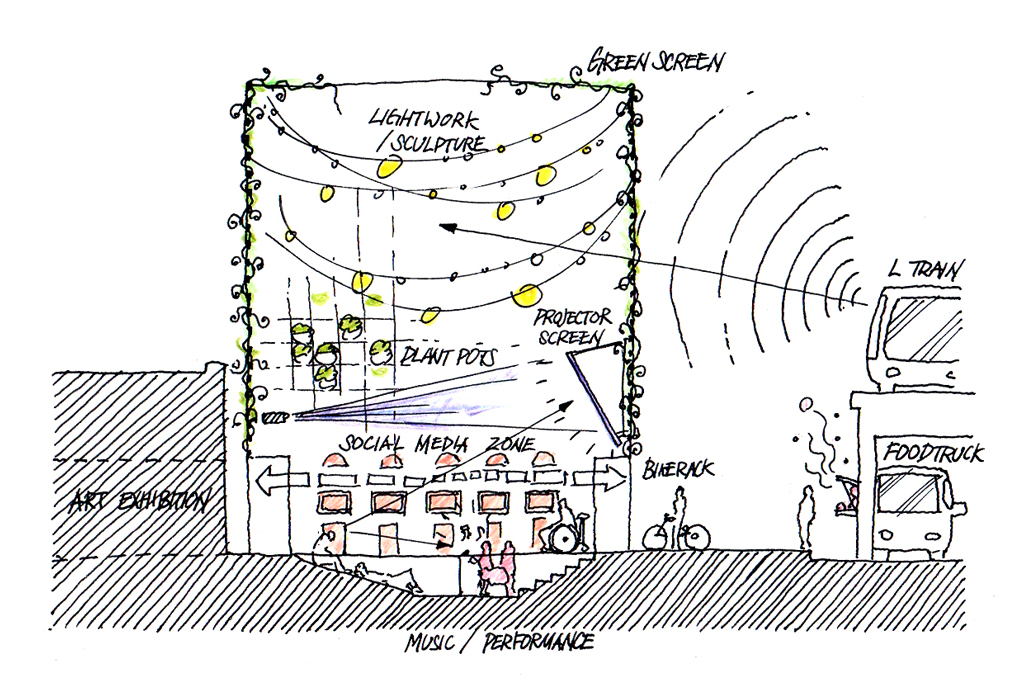 GREEN SCREEN
LIGHTWORK
/ SCULPTURE
L TRAIN
PROJECTOR
SCREEN
PLANT POTS
SOCIAL MEDIA ZONE
BIKERACK
FOODTRUCK
ART EXHIBITION
MUSIC / PERFORMANCE